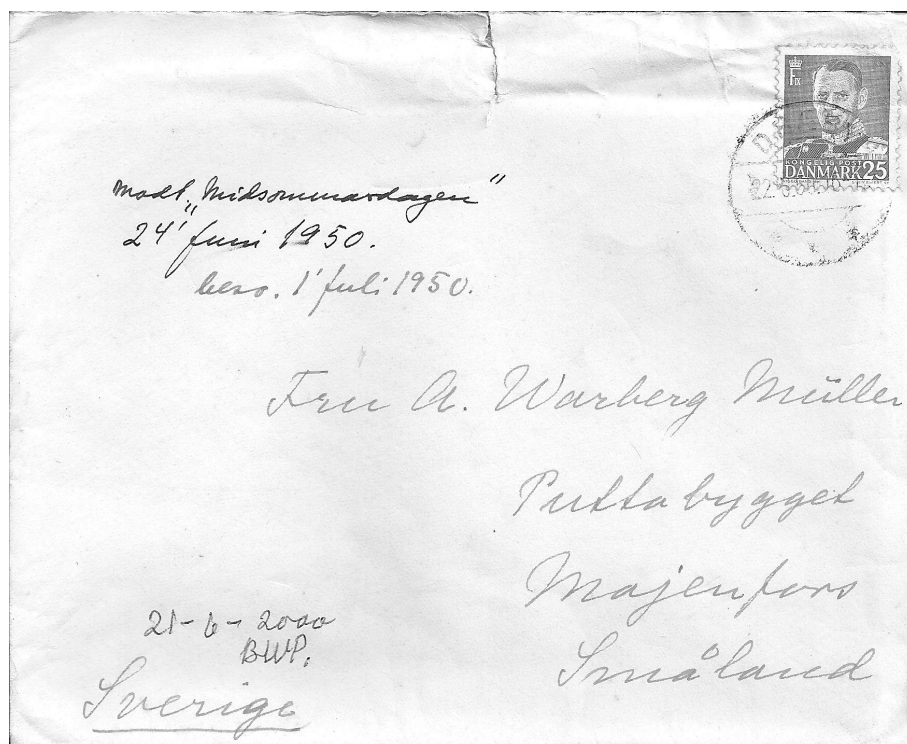 F IX
KONGELIG POST
DANMARK 25
modt. „Midsommardagen"
24' Juni 1950.
besv. 1' Juli 1950.
Fru A. Warberg Müller
Puttabygget
Majenfors
Småland
21-6-2000
BWP.
Sverige